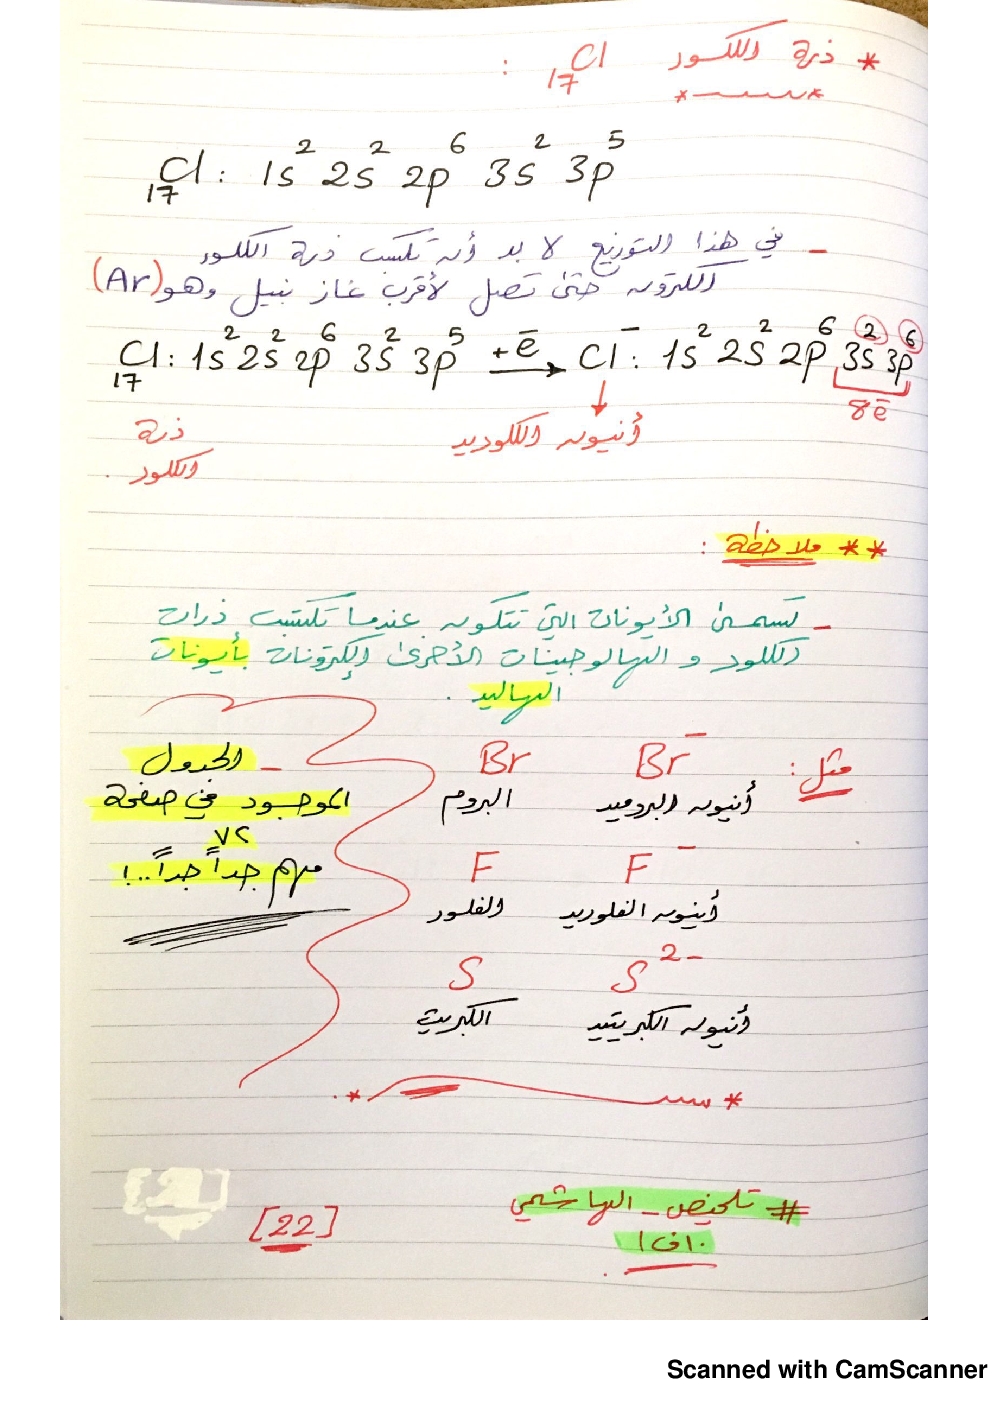 * ذرة الكلور 17Cl :
17Cl : 1s² 2s² 2p⁶ 3s² 3p⁵
– في هذا التوزيع لا بد أن تكتسب ذرة الكلور
إلكترون حتى تصل لأقرب غاز نبيل وهو (Ar)
17Cl : 1s² 2s² 2p⁶ 3s² 3p⁵ +ē → Cl⁻ : 1s² 2s² 2p⁶ 3s² 3p⁶
8ē
ذرة
الكلور
أنيون الكلوريد
** ملاحظة :
– تسمى الأيونات التي تتكون عندما تكتسب ذرات
الكلور و الهالوجينات الأخرى إلكترونات بأيونات
الهاليد .
مثل :
Br⁻ Br
أنيون البروميد البروم
F⁻ F
أنيون الفلوريد الفلور
S²⁻ S
أنيون الكبريتيد الكبريت
– الجدول
الموجود في صفحة
٧٢
مهم جداً جداً..!
# تلخيص _ الهاشمي
١٠ف١
[22]
Scanned with CamScanner